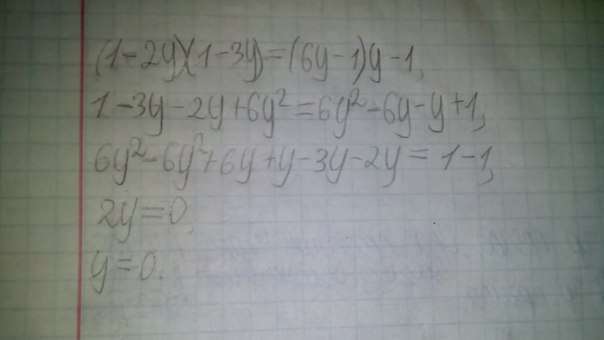 (1-2y)(1-3y)=(6y-1)y-1,
1-3y-2y+6y²=6y²-6y-y+1,
6y²-6y²+6y+y-3y-2y=1-1,
2y=0,
y=0.